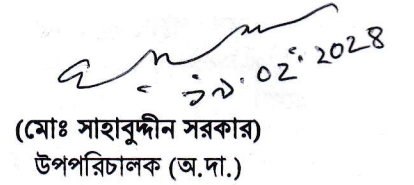 ১৯.০২.২০২৪
(মোঃ সাহাবুদ্দীন সরকার)
উপপরিচালক (অ.দা.)